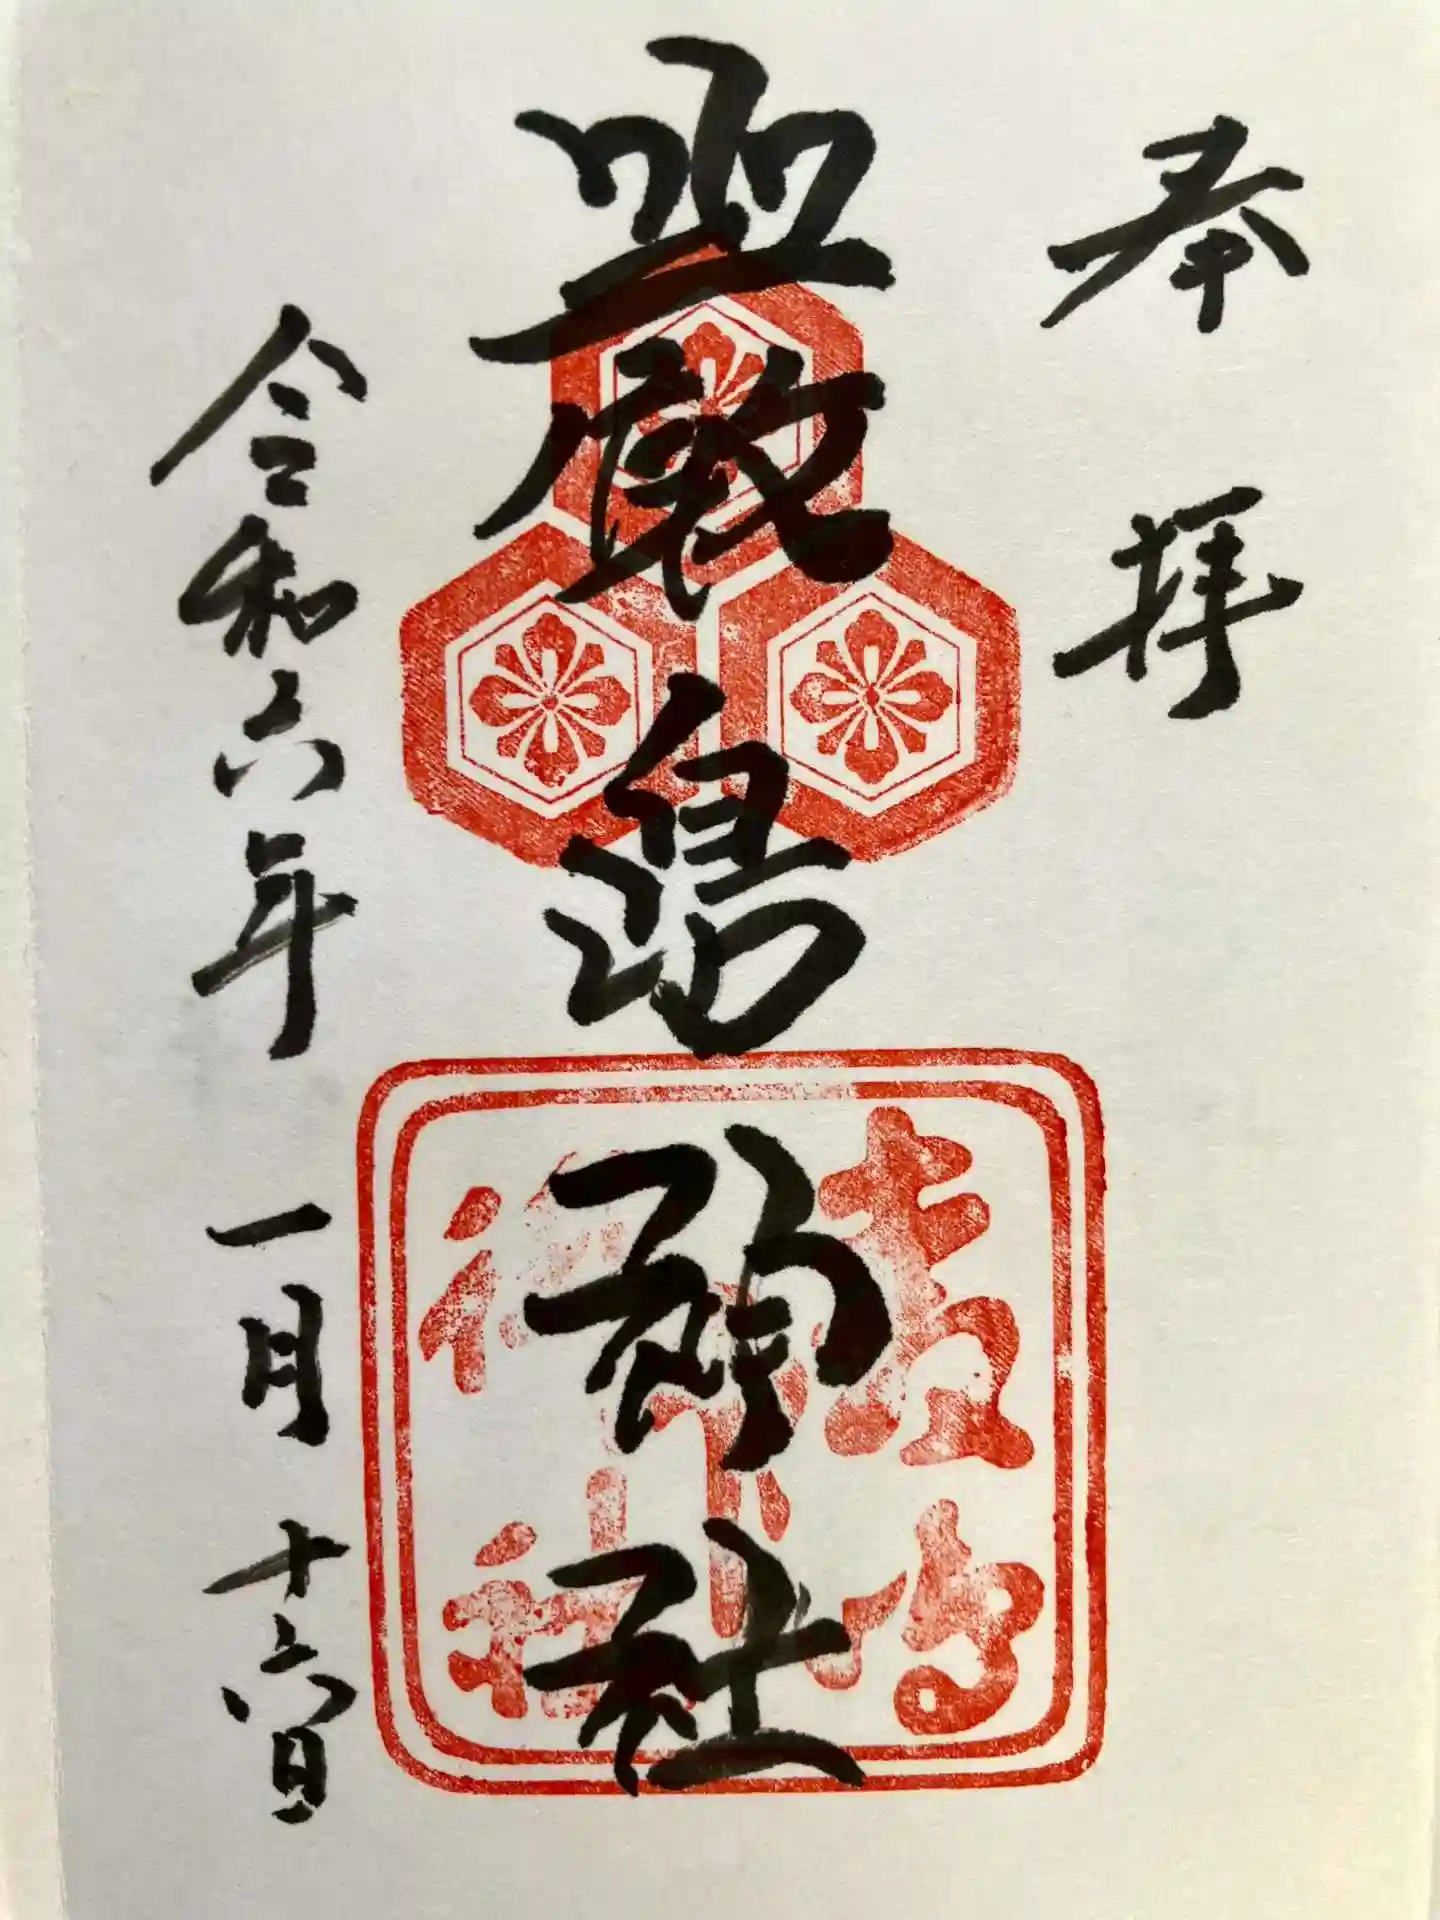 奉拝
嚴島神社
令和六年一月十六日
嚴島神社